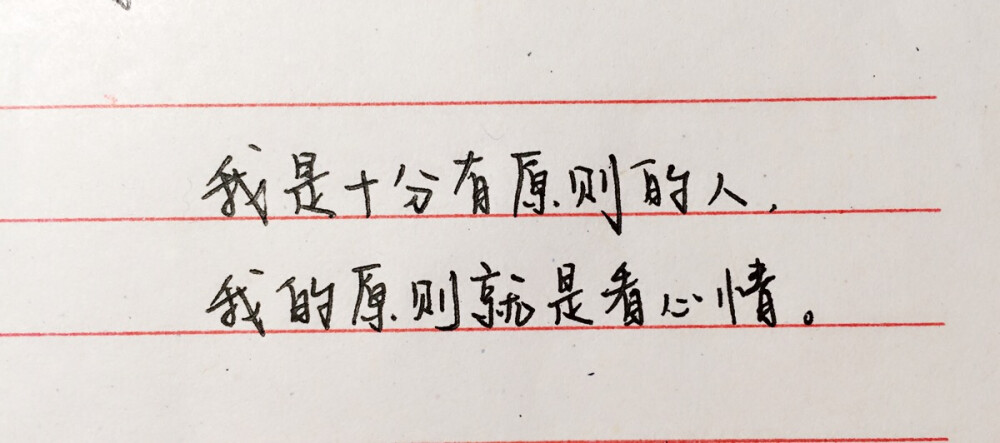 我是十分有原则的人,
我的原则就是看心情。